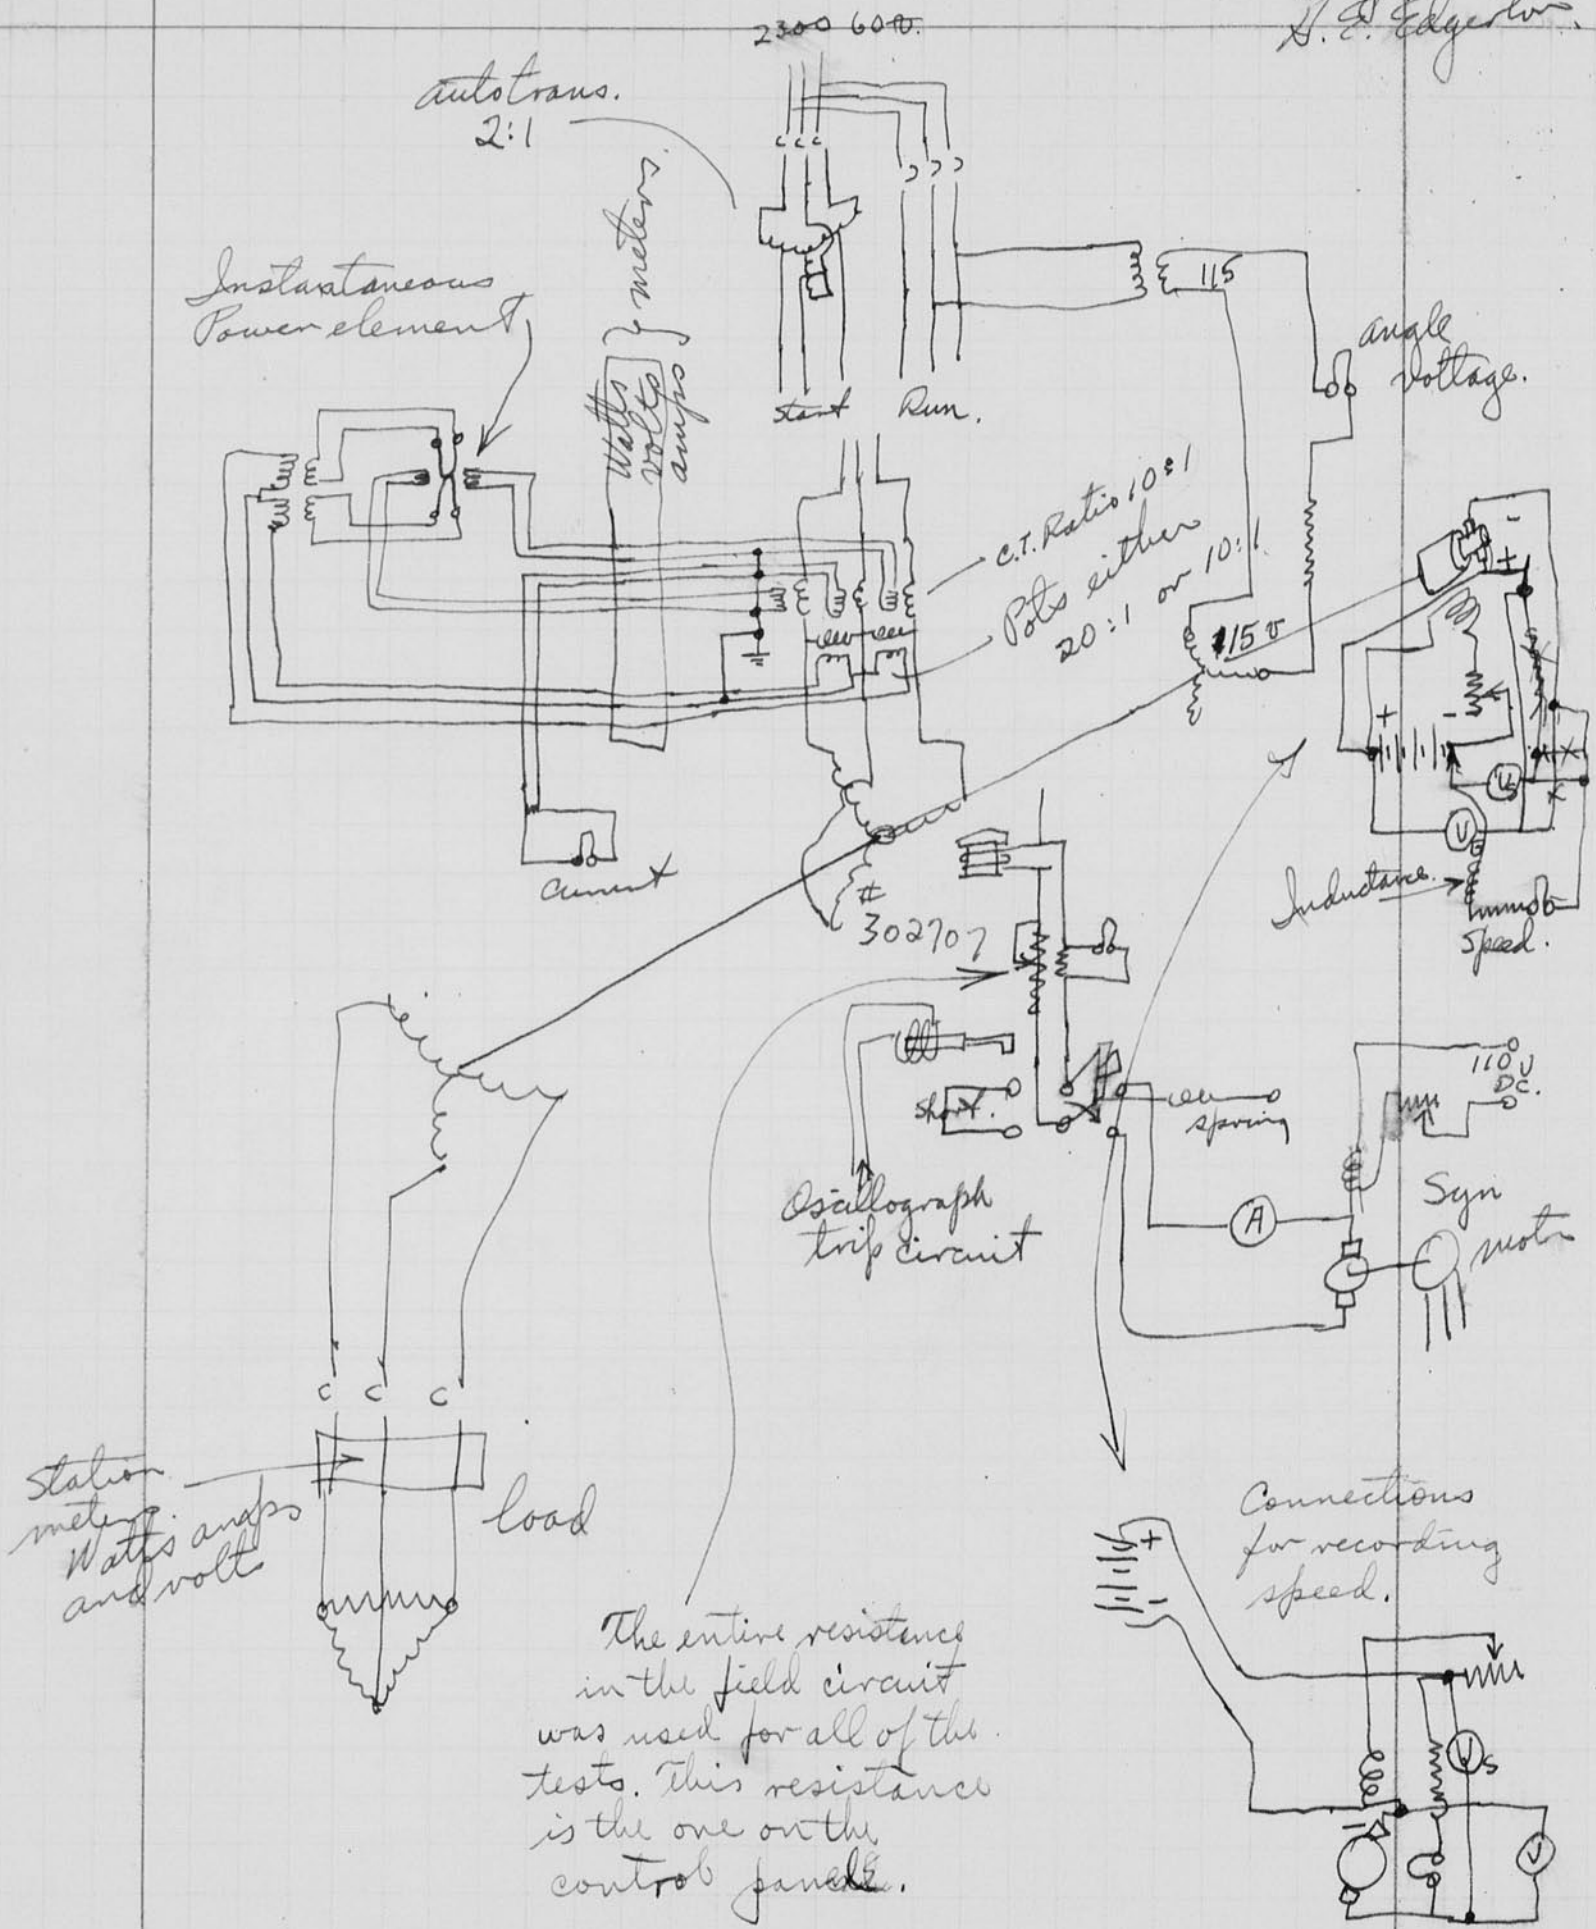 H. E. Edgerton.
2300 60~.
autotrans.
2:1
Instantaneous
Power element
Watts
volts
amps
} meters.
Start Run.
115
angle
voltage.
C.T. Ratio 10:1
Pots either
20:1 or 10:1.
115 v
-
+
+ -
Vs
V
X
X
Inductance.
Speed.
Current
#
302707
short.
spring
110 V
DC.
Oscillograph
trip circuit
A
Syn
motor
C C C
Station
meters.
Watts amps
and volts
load
Connections
for recording
speed.
+
-
Vs
V
The entire resistance
in the field circuit
was used for all of the
tests. This resistance
is the one on the
control panel.